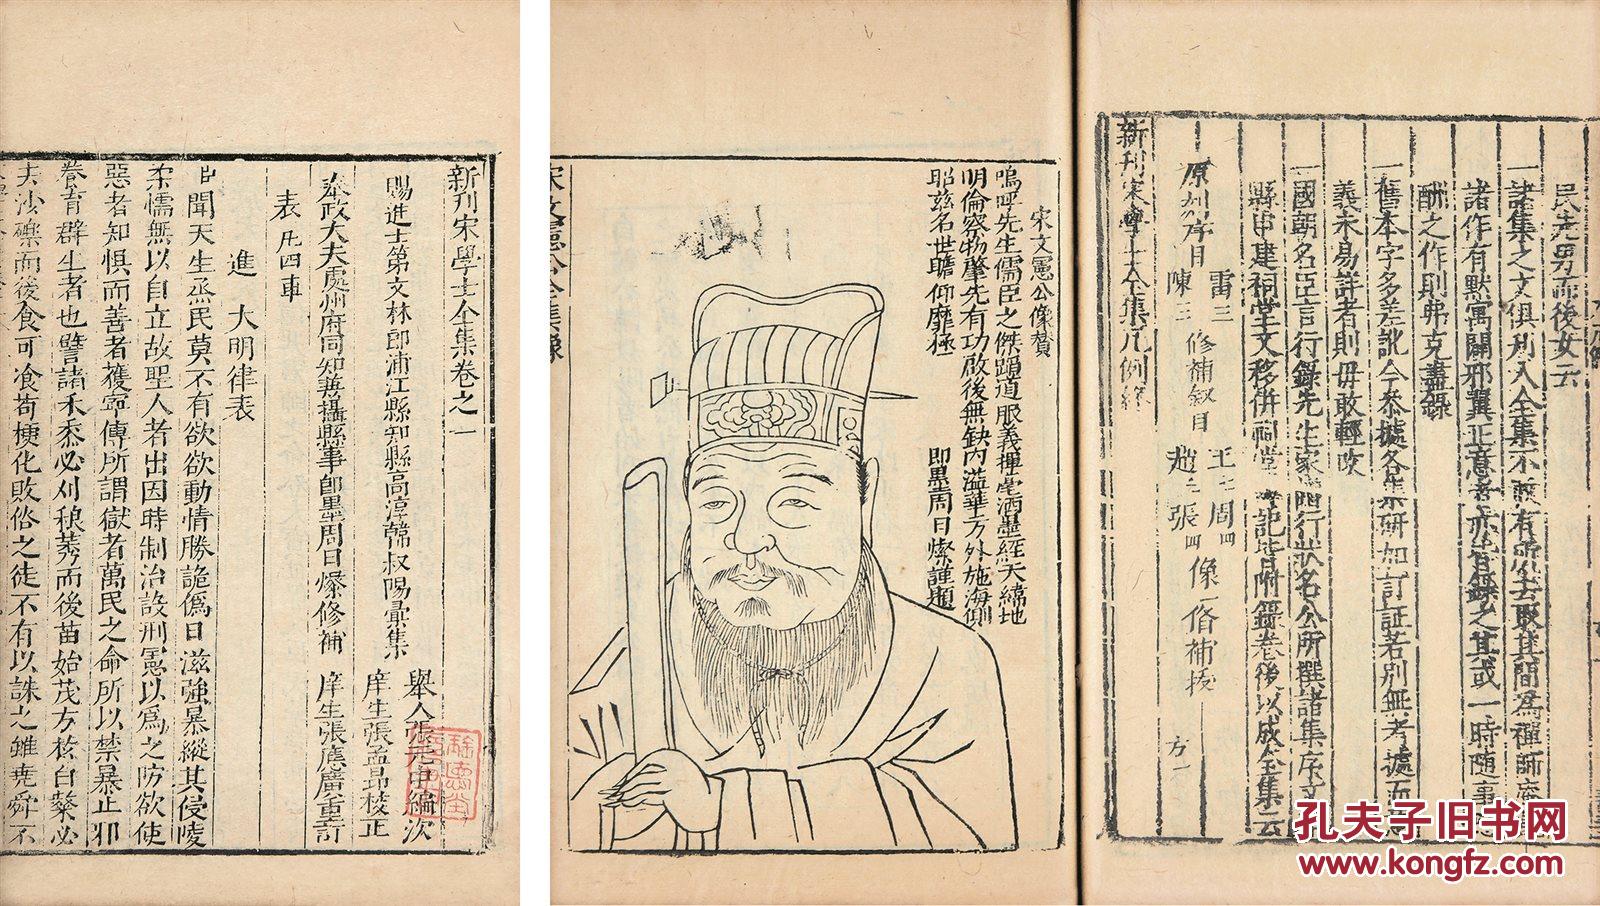 民先男而後女云
一諸集之文俱刋入全集不敢有所去取其間爲禪師
諸作有默寓闢邪翼正意者亦皆錄之其或一時随事
酬之作則弗克盡錄
一舊本字多差訛今叅據各集研加訂証若别無考據
義未易詳者則毋敢輕改
一國朝名臣言行錄先生家
行狀名公所撰諸集序文
縣申建祠堂文移併祠堂
記皆附錄卷後以成全集云
原刋序目
雷三
王七
周四
陳三
修補叙目
趙七
張四
像一
脩補
新刊宋學士全集凡例終
宋文憲公像賛
嗚呼先生儒臣之傑蹈道服義揮毫洒墨經天緯地
明倫察物肇先有功啟後無缺内溢華方外施海
耶兹名世瞻仰靡極
即墨周日燦謹題
宋文憲公全集像
新刊宋學士全集卷之一
賜進士第文林郎浦江縣知縣高淳韓叔陽彙集
舉人張元中編次
庠生張孟昂校正
奉政大夫處州府同知兼攝縣事卽墨周日燦修補
庠生張應廣重訂
表凡四章
進
大明律表
臣聞天生烝民莫不有欲欲動情勝詭僞日滋強暴縱其侵凌
柔懦無以自立故聖人者出因時制治設刑憲以爲之防欲使
惡者知懼而善者獲寧傳所謂獄者萬民之命所以禁暴止邪
養育群生者也譬諸禾黍必刈稂莠而後苗始茂方於白粲必
去沙礫而後食可飡苟梗化敗俗之徒不有以誅之雖堯舜不
孔夫子旧书网
www.kongfz.com